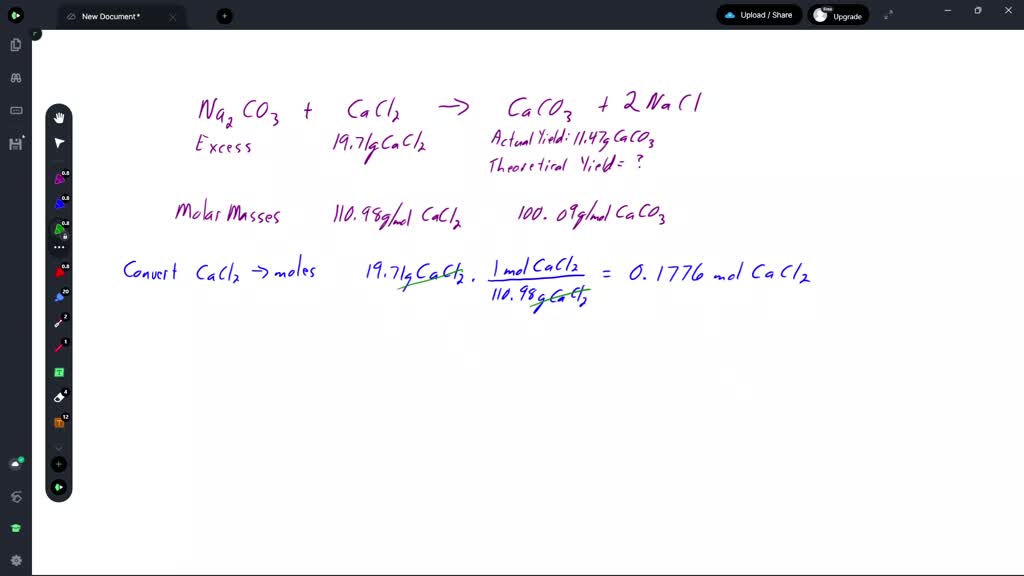 New Document*
Upload / Share
Free
Upgrade
Na2CO3 + CaCl2 → CaCO3 + 2NaCl
Excess 19.71g CaCl2 Actual Yield: 11.47g CaCO3
Theoretical Yield = ?
Molar Masses 110.98g/mol CaCl2 100.09g/mol CaCO3
Convert CaCl2 → moles 19.71g CaCl2 · 1 mol CaCl2 / 110.98g CaCl2 = 0.1776 mol CaCl2
0.8
0.8
0.8
0.8
20
2
1
T
4
12